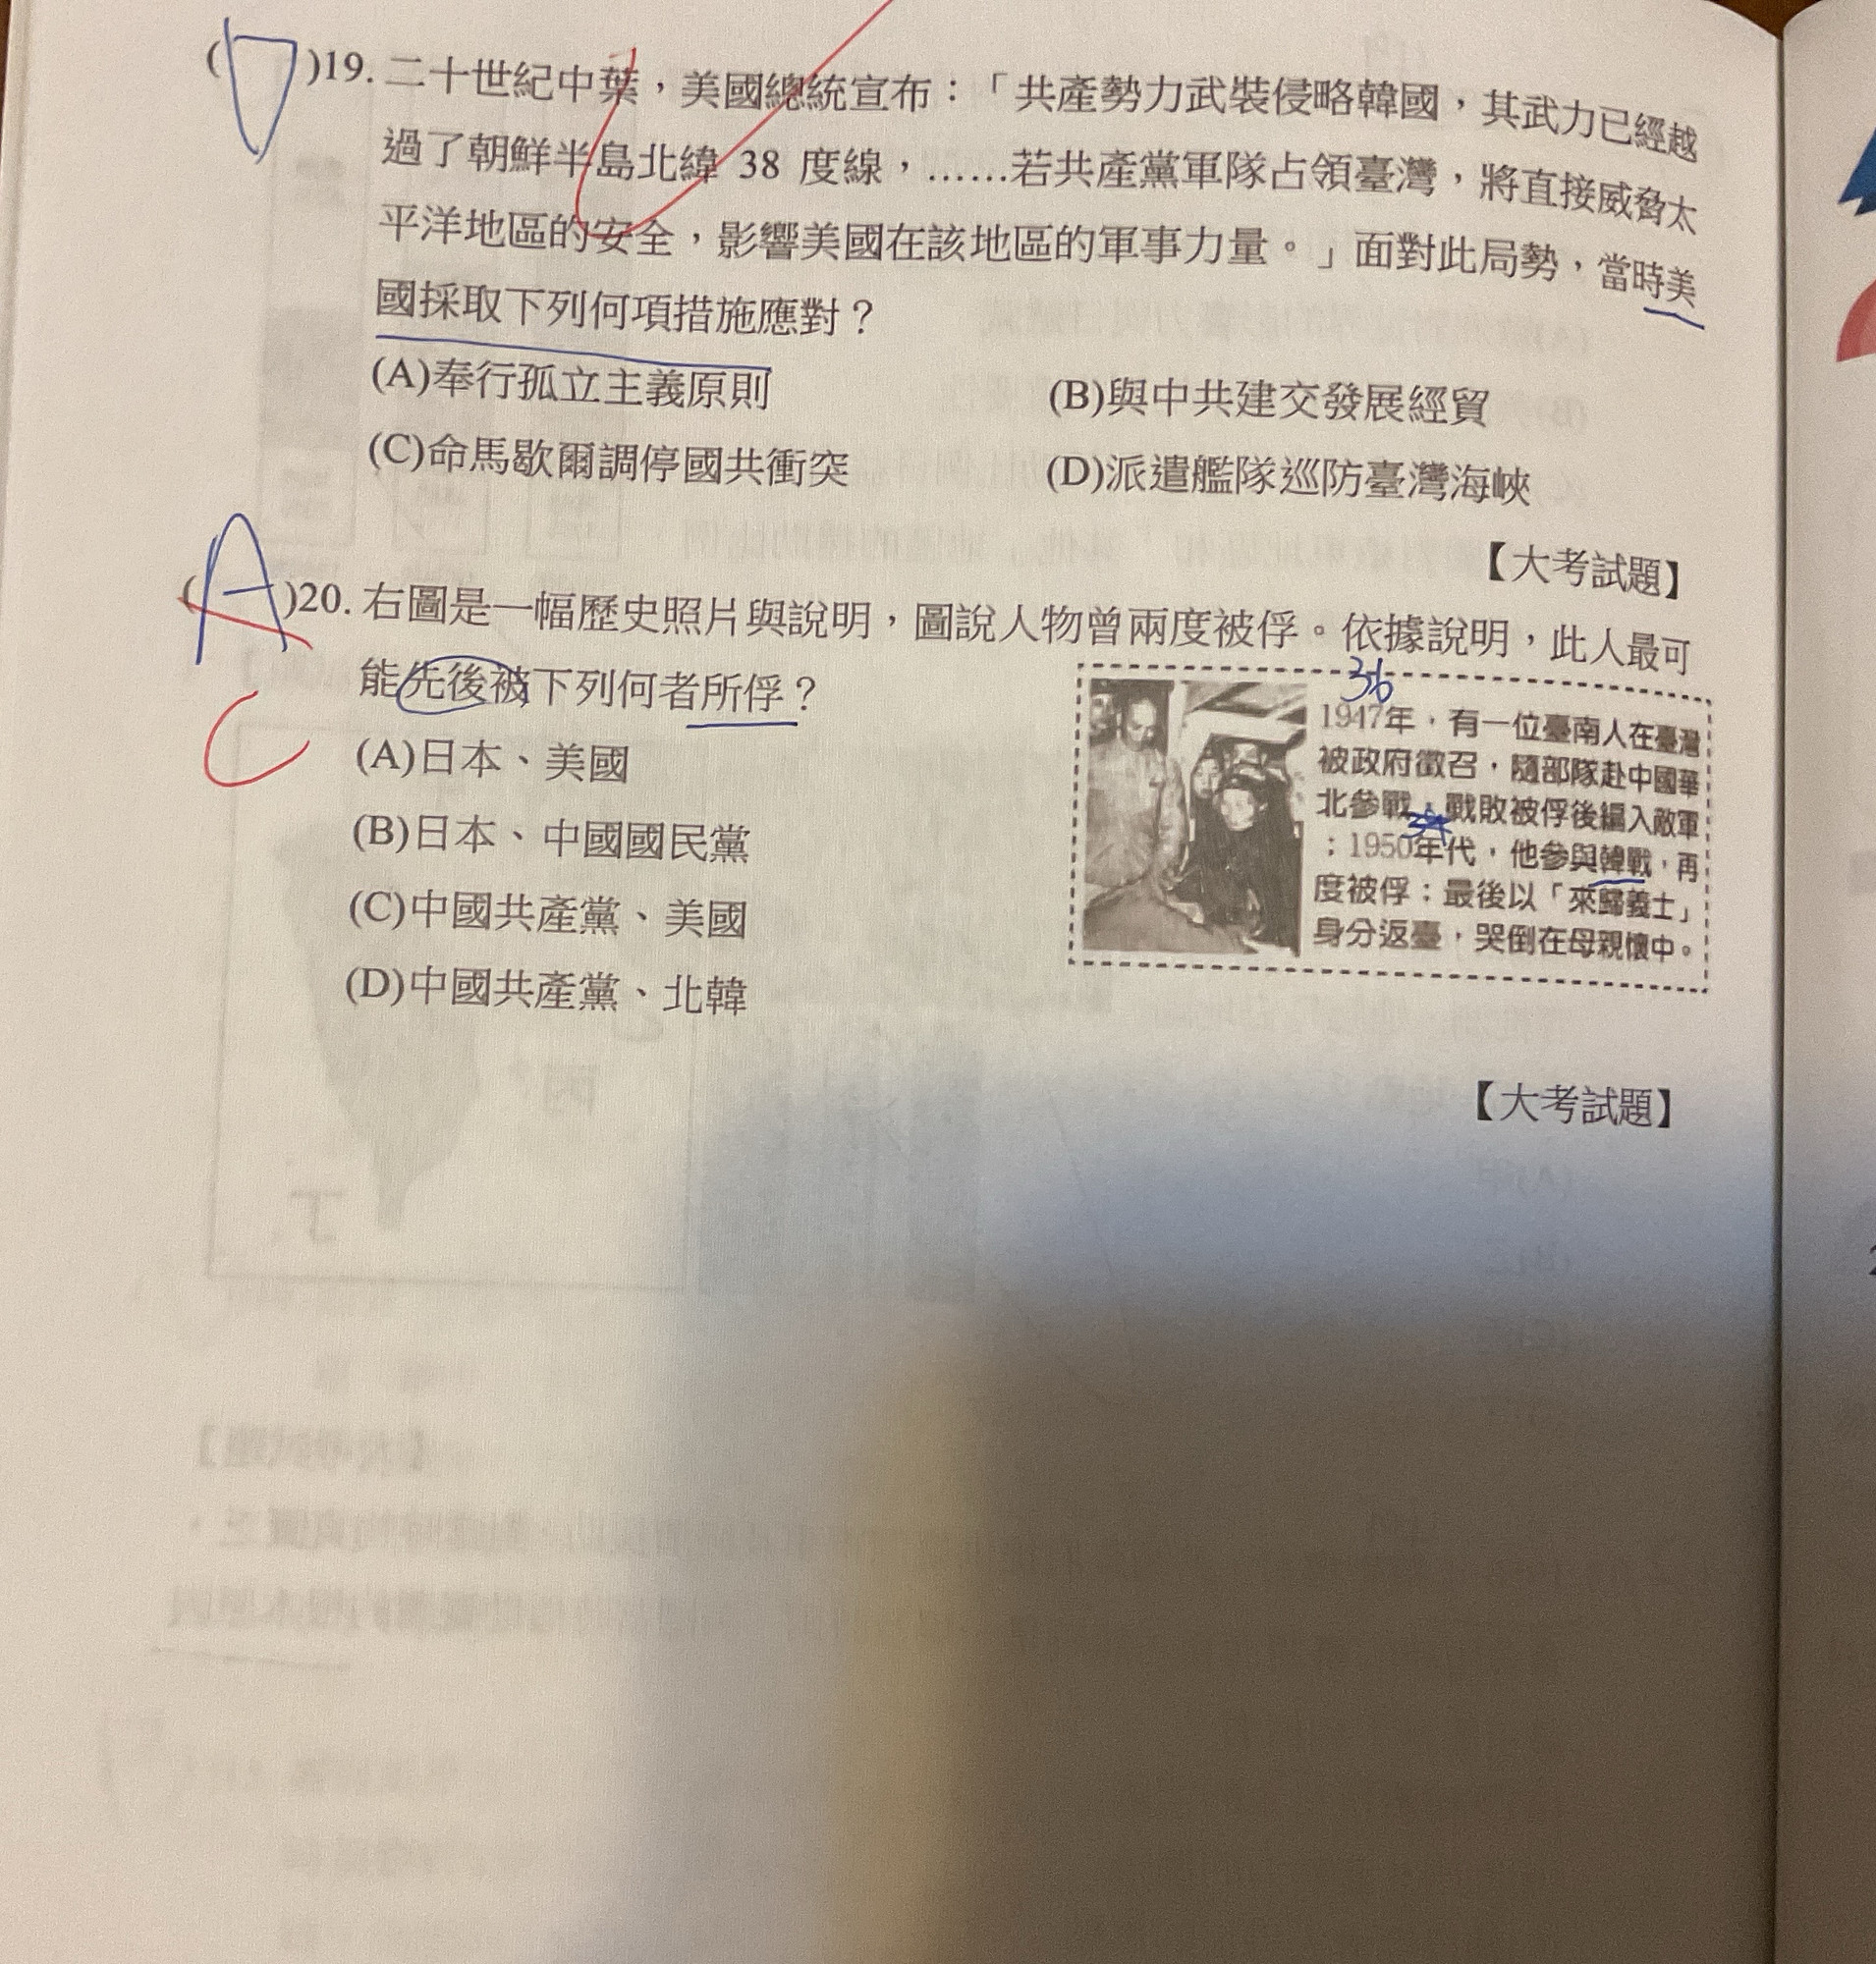 (D)19. 二十世紀中葉，美國總統宣布：「共產勢力武裝侵略韓國，其武力已經越
過了朝鮮半島北緯 38 度線，……若共產黨軍隊占領臺灣，將直接威脅太
平洋地區的安全，影響美國在該地區的軍事力量。」面對此局勢，當時美
國採取下列何項措施應對？
(A)奉行孤立主義原則
(B)與中共建交發展經貿
(C)命馬歇爾調停國共衝突
(D)派遣艦隊巡防臺灣海峽
【大考試題】
(A)20. 右圖是一幅歷史照片與說明，圖說人物曾兩度被俘。依據說明，此人最可
能先後被下列何者所俘？
C
(A)日本、美國
(B)日本、中國國民黨
(C)中國共產黨、美國
(D)中國共產黨、北韓
36
1947年，有一位臺南人在臺灣
被政府徵召，隨部隊赴中國華
北參戰，戰敗被俘後編入敵軍
；1950年代，他參與韓戰，再
度被俘；最後以「來歸義士」
身分返臺，哭倒在母親懷中。
【大考試題】